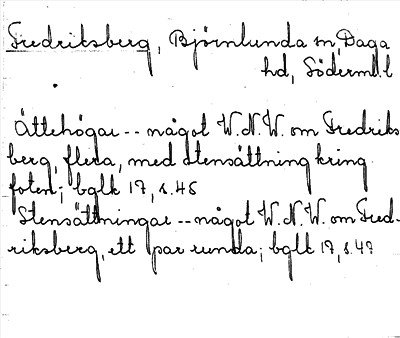 Fredriksberg, Björnlunda sn, Daga
hd, Söderml.l
Ättehögar -- något W.N.W. om Fredriks
berg, flera, med stensättning kring
foten; bglk 17, s.46
Stensättningar -- något W.N.W. om Fred-
riksberg, ett par runda; bglk 17, s.47